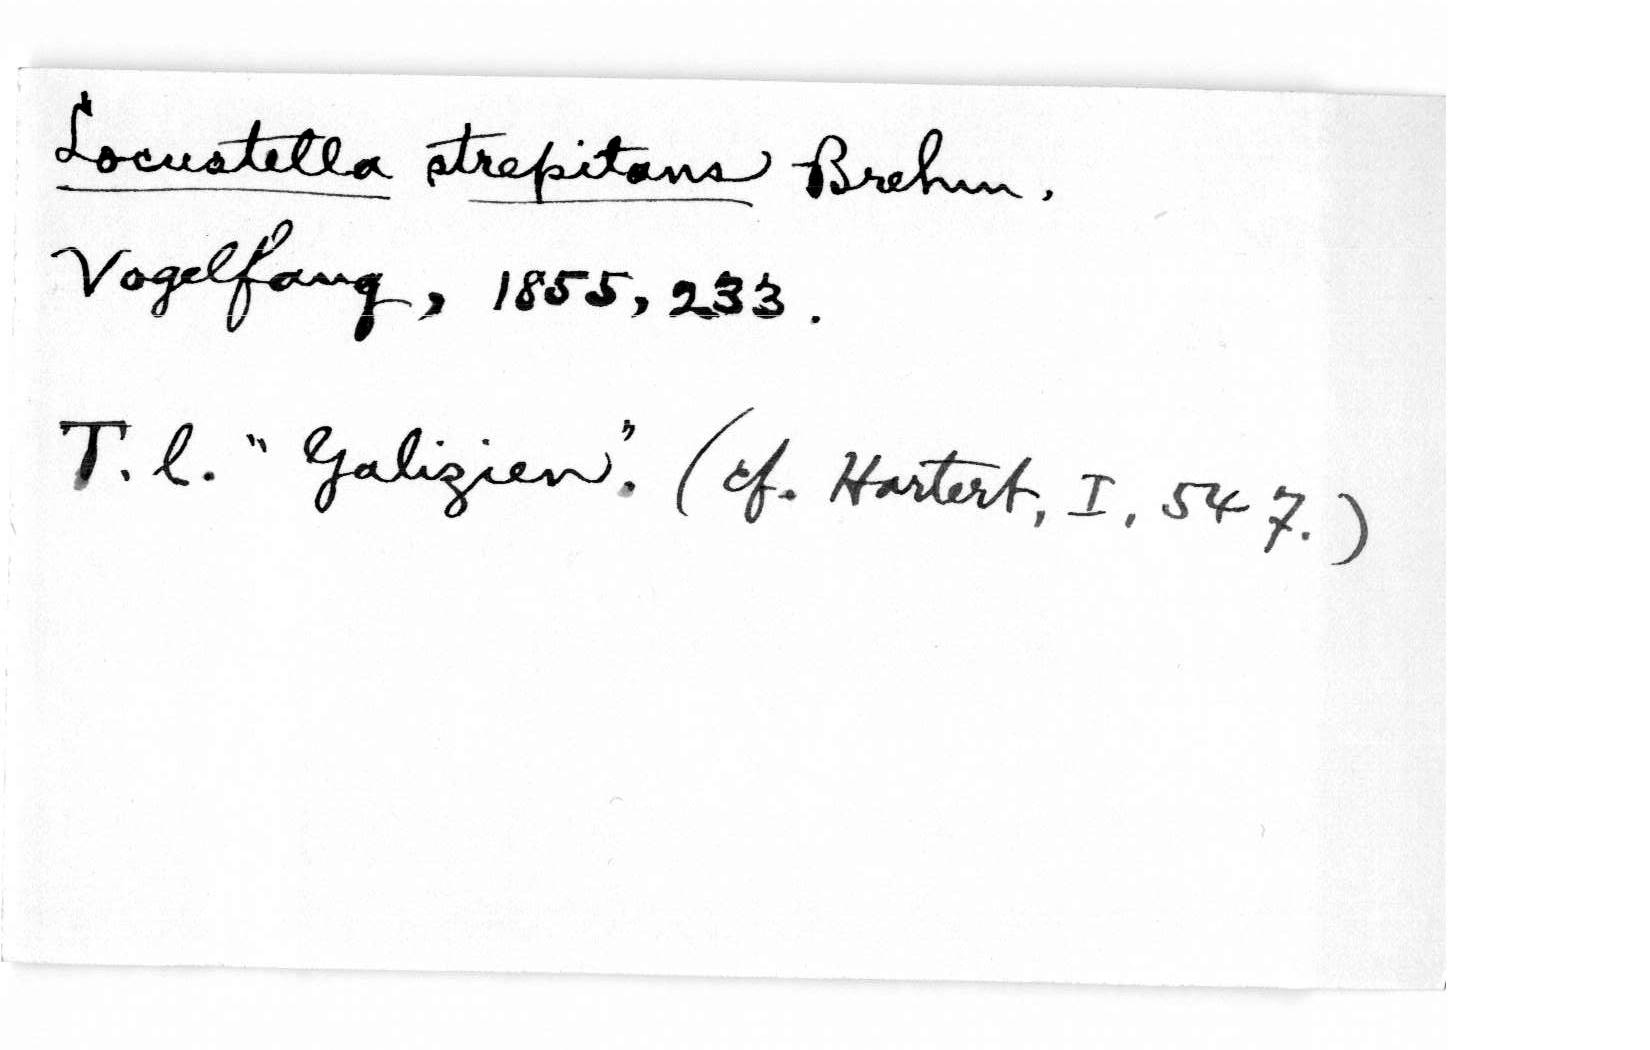 Locustella strepitans Brehm.
Vogelfang, 1855, 233.
T. l. "Galizien". (cf. Hartert, I, 547.)